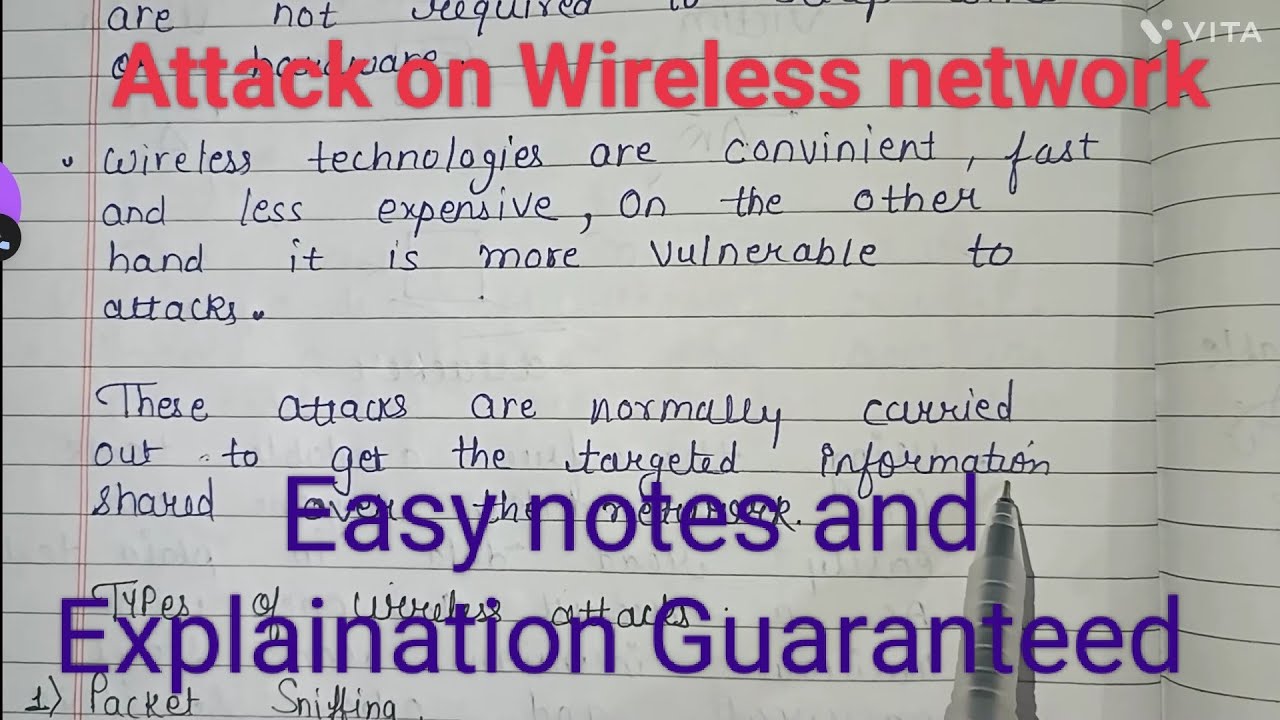 are not required to
VITA
Attack on Wireless network
or hardware.
wireless technologies are convinient, fast
and less expensive, On the other
hand it is more vulnerable to
attacks.
These attacks are normally carried
out to get the targeted information
shared over the network.
Easy notes and
Types of wireless attacks.
Explaination Guaranteed
1) Packet Sniffing.